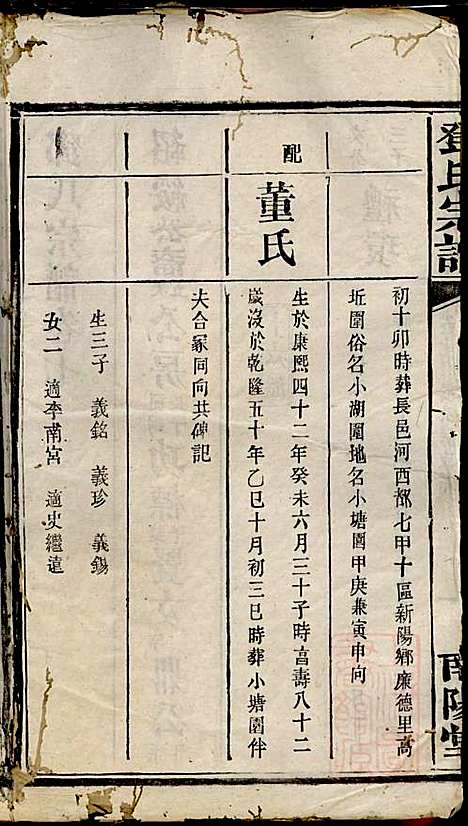 鄧氏宗譜
南陽堂
初十卯時葬長邑河西都七甲十區新陽鄉廉德里高
坵圍俗名小湖圍地名小塘圍甲庚兼寅申向
配
董氏
生於康熙四十二年癸未六月三十子時富壽八十二
歲沒於乾隆五十年乙巳十月初三巳時葬小塘圍伴
夫合冢同向共碑記
生三子 義銘 義珍 義錫
女二 適李南宮 適史繼遠